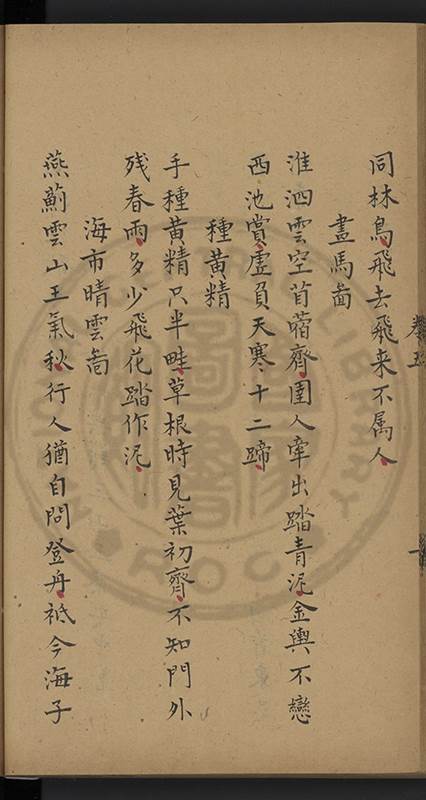 同林鳥飛去飛来不属人
畫馬啚
淮泗雲空苜蓿齊圉人牽出踏青泥金輿不戀
西池賞虛負天寒十二蹄
種黄精
手種黄精只半畦草根時見葉初齊不知門外
残春雨多少飛花踏作泥
海市晴雲啚
燕薊雲山王氣秋行人猶自問登舟祇今海子